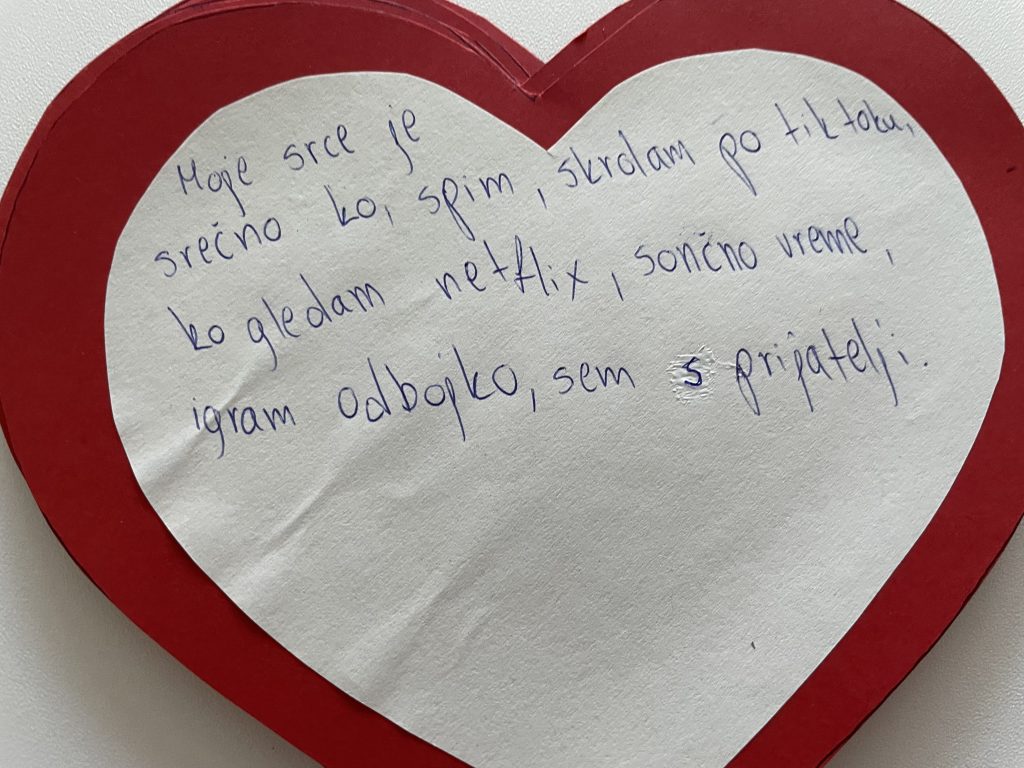 Moje srce je
srečno ko, spim, skrolam po tiktoku,
ko gledam netflix, sončno vreme,
igram odbojko, sem s prijatelji.